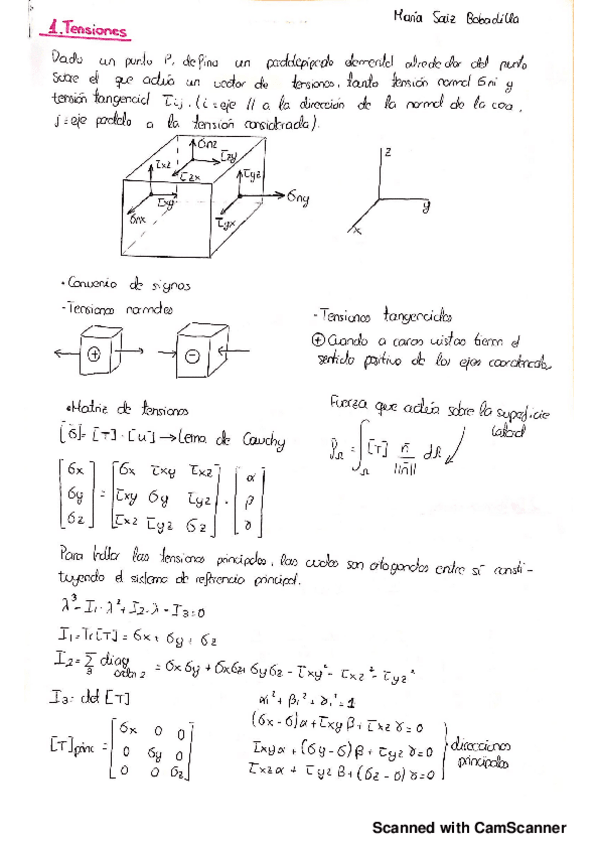 María Saiz Bobadilla
1. Tensiones
Dado un punto P, defino un paralelepípedo elemental alrededor del punto
sobre el que actúa un vector de tensiones, tanto tensión normal σni y
tensión tangencial τij. (i = eje // a la dirección de la normal de la cara,
j = eje paralelo a la tensión considerada).
σnz
τxz τzy
τzx τyz
τxy σny
σnx τyx
z
y
x
• Convenio de signos
- Tensiones normales
- Tensiones tangenciales
⊕ Cuando a caras vistas tienen el
sentido positivo de los ejes coordenados
+ −
• Matriz de tensiones
[σ] = [T] · [u] → Lema de Cauchy
Fuerza que actúa sobre la superficie
PΩ = ∫Ω [T] n/||n|| dΩ
[σx σy σz] = [σx τxy τxz; τxy σy τyz; τxz τyz σz] · [α β γ]
Para hallar las tensiones principales, las cuales son ortogonales entre sí consti-
tuyendo el sistema de referencia principal.
λ³ - I1 · λ² + I2 · λ - I3 = 0
I1 = Tr[T] = σx + σy + σz
I2 = Σ3 diag orden 2 = σxσy + σxσz + σyσz - τxy² - τxz² - τyz²
I3 = det [T]
αi² + βi² + γi² = 1
(σx - σ)α + τxyβ + τxzγ = 0
[T]princ = [σx 0 0; 0 σy 0; 0 0 σz]
τxyα + (σy - σ)β + τyzγ = 0
τxzα + τyzβ + (σz - σ)γ = 0
direcciones
principales
Scanned with CamScanner